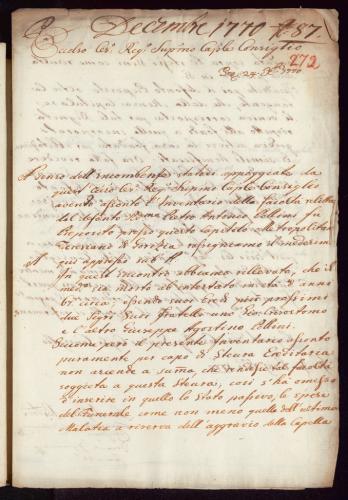 Decembre 1770 N.º 87.
Excelso Ces.º Reg.º Supino Caples Consiglio
272
24. Xbre 1770
A tenore dell'incombenza stataci appoggiata da
quest' Ces.º Reg.º Supino Caples Consiglio
avendo assonto l'Inventario della facoltà relitta
dal defonto Pietro Antonio Pollini fu
Preposito presso questo Capitolo Metropolitan
Teresiano di Gorizia rassegniamo il medesimo
qui aggiesso sub A
In quest'incontro abbiamo rillevato, che il
med.mo sia morto ab intestato in età d'anni
61 circa; essendo suoi eredi più prossimi
due Sign.i Suoi fratelli uno Gio: Grisostomo
e l'altro Giuseppe Agostino Pollini.
Siccome però il presente Inventario assonto
puramente per capo di Steura Ereditaria
non ascende a sum̃a, che rendesse tal facoltà
soggetta a questa Steura; così s'hà omesso
d'inserire in quello lo Stato passivo, le spese
del Funerale come non meno quelle dell'ultima
Malatia a riserva dell'aggravio della Capella